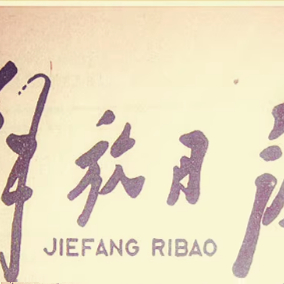 解放日报
JIEFANG RIBAO